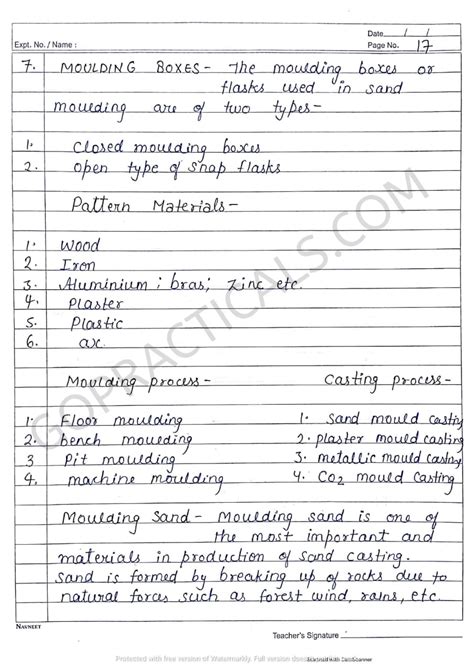 Date / /
Expt. No. / Name : Page No. 17
7. MOULDING BOXES - The moulding boxes or
flasks used in sand
moulding are of two types-
1. Closed moulding boxes
2. Open type of snap flasks
Pattern Materials-
1. Wood
2. Iron
3. Aluminium ; bras; Zinc etc.
4. Plaster
5. Plastic
6. ax.
Moulding process- Casting process-
1. Floor moulding 1. Sand mould casting
2. bench moulding 2. plaster mould casting
3 Pit moulding 3. metallic mould casting
4. machine moulding 4. CO2 mould casting
Moulding Sand - Moulding sand is one of
the most important and
materials in production of sand casting.
Sand is formed by breaking up of rocks due to
natural forcs such as forest wind, rains, etc.
NAVNEET
Teacher's Signature
Protected with free version of Watermarkly. Full version doesn't
Scanned with CamScanner
GOPRACTICALS.COM